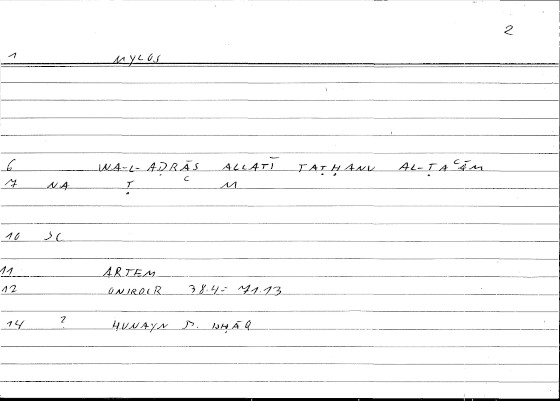 2
1 MYLOS
6 WA-L-AḌRĀS ALLATĪ TAṬḤANU AL-ṬAʿĀM
7 NA Ṭ C M
10 SC
11 ARTEM
12 ONIROCR 38.4 = 71.13
14 ? ḤUNAYN B. ISḤĀQ